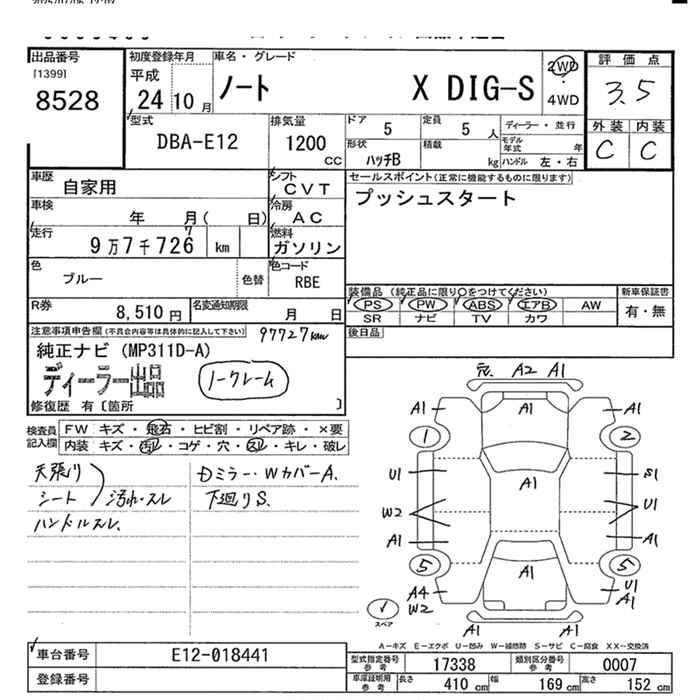 出品番号
[1399]
8528
初度登録年月
平成
24年10月
車名・グレード
ノート X DIG-S
2WD
・
4WD
評価点
3.5
外装 内装
C C
型式
DBA-E12
排気量
1200
CC
ドア 5
定員 5人
ディーラー・並行
形状 ハッチB
積載 kg
モデル年式 年
ハンドル 左・右
車歴
自家用
シフト
CVT
セールスポイント(正常に機能するものに限ります)
プッシュスタート
車検
年 月( 日)
冷房
AC
走行
9万7千726 km
7
燃料
ガソリン
色
ブルー
色替
色コード
RBE
装備品 (純正品に限り○をつけてください)
PS PW ABS エアB AW
SR ナビ TV カワ
新車保証書
有・無
R券
8,510円
名変通知期限
月 日
後日品
注意事項申告欄(不具合内容等は具体的に記入して下さい)
97727km
純正ナビ (MP311D-A)
ディーラー出品
ノークレーム
修復歴 有〔箇所 〕
検査員記入欄
FW キズ・飛石・ヒビ割・リペア跡・×要
内装 キズ・汚れ・コゲ・穴・スレ・キレ・破レ
天張り
シート 汚れ・スレ
ハンドルスレ、
Dミラー・WカバーA、
下廻りS、
A2 A1
A1 A1 A1
1 2
U1 A1 S1
W2 U1
A1 A1
5 5
A1
A4 U1
W2 A1
A1
スペア
A-キズ E-エクボ U-凹み W-補修跡 S-サビ C-腐食 XX-交換済
車台番号
E12-018441
登録番号
型式指定番号
参考
17338
類別区分番号
参考
0007
車庫証明用
参考
長さ 410 cm
幅 169 cm
高さ 152 cm